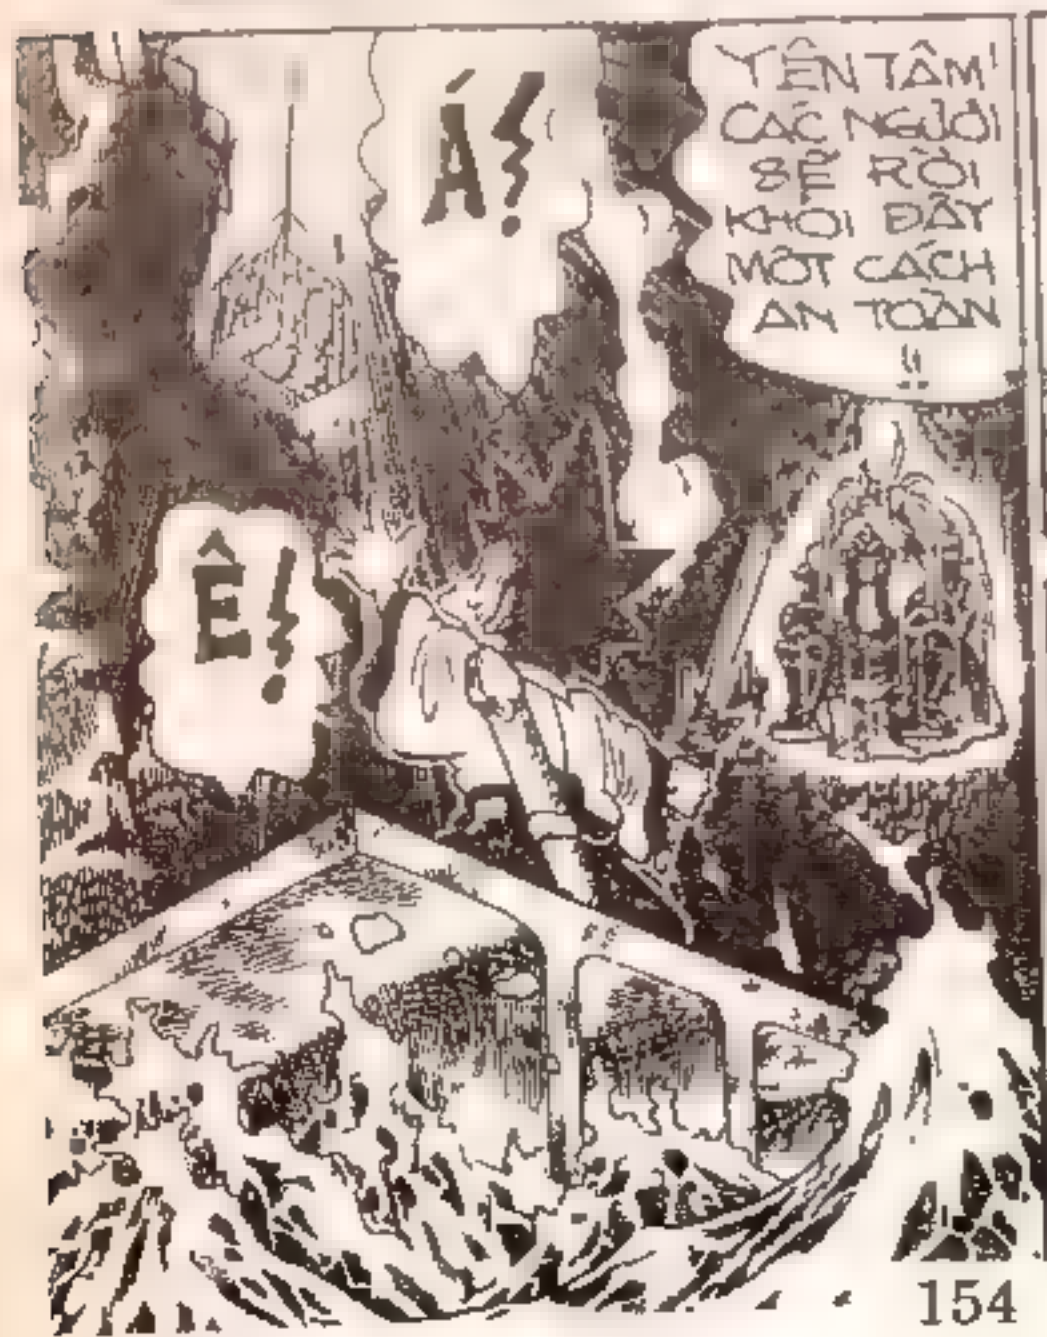 Á!
YÊN TÂM
CÁC NGƯỜI
SẼ RỜI
KHỎI ĐÂY
MỘT CÁCH
AN TOÀN
!!
Ê!
154